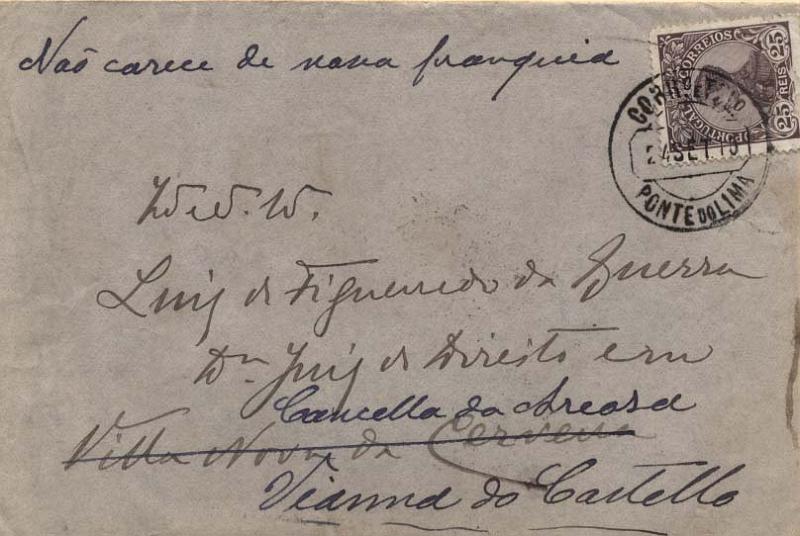 Não carece de nova franquia
CORREIOS
25 REIS 25
PORTUGAL
24 SET 191
PONTE DO LIMA
Luiz de Figueiredo da Guerra
Dr. Juiz de Direito em
Cancella da Areosa
Villa Nova da Cerveira
Vianna do Castello